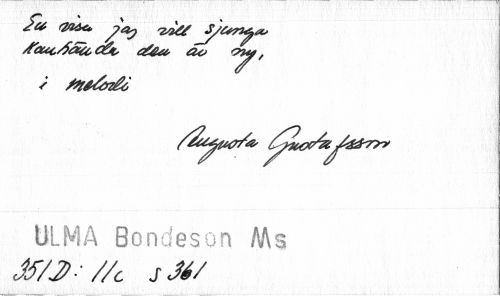 En visa jag vill sjunga
Kanhända den är ny,
i melodi
Augusta Gustafsson
ULMA Bondeson Ms
351D: 11c s 361